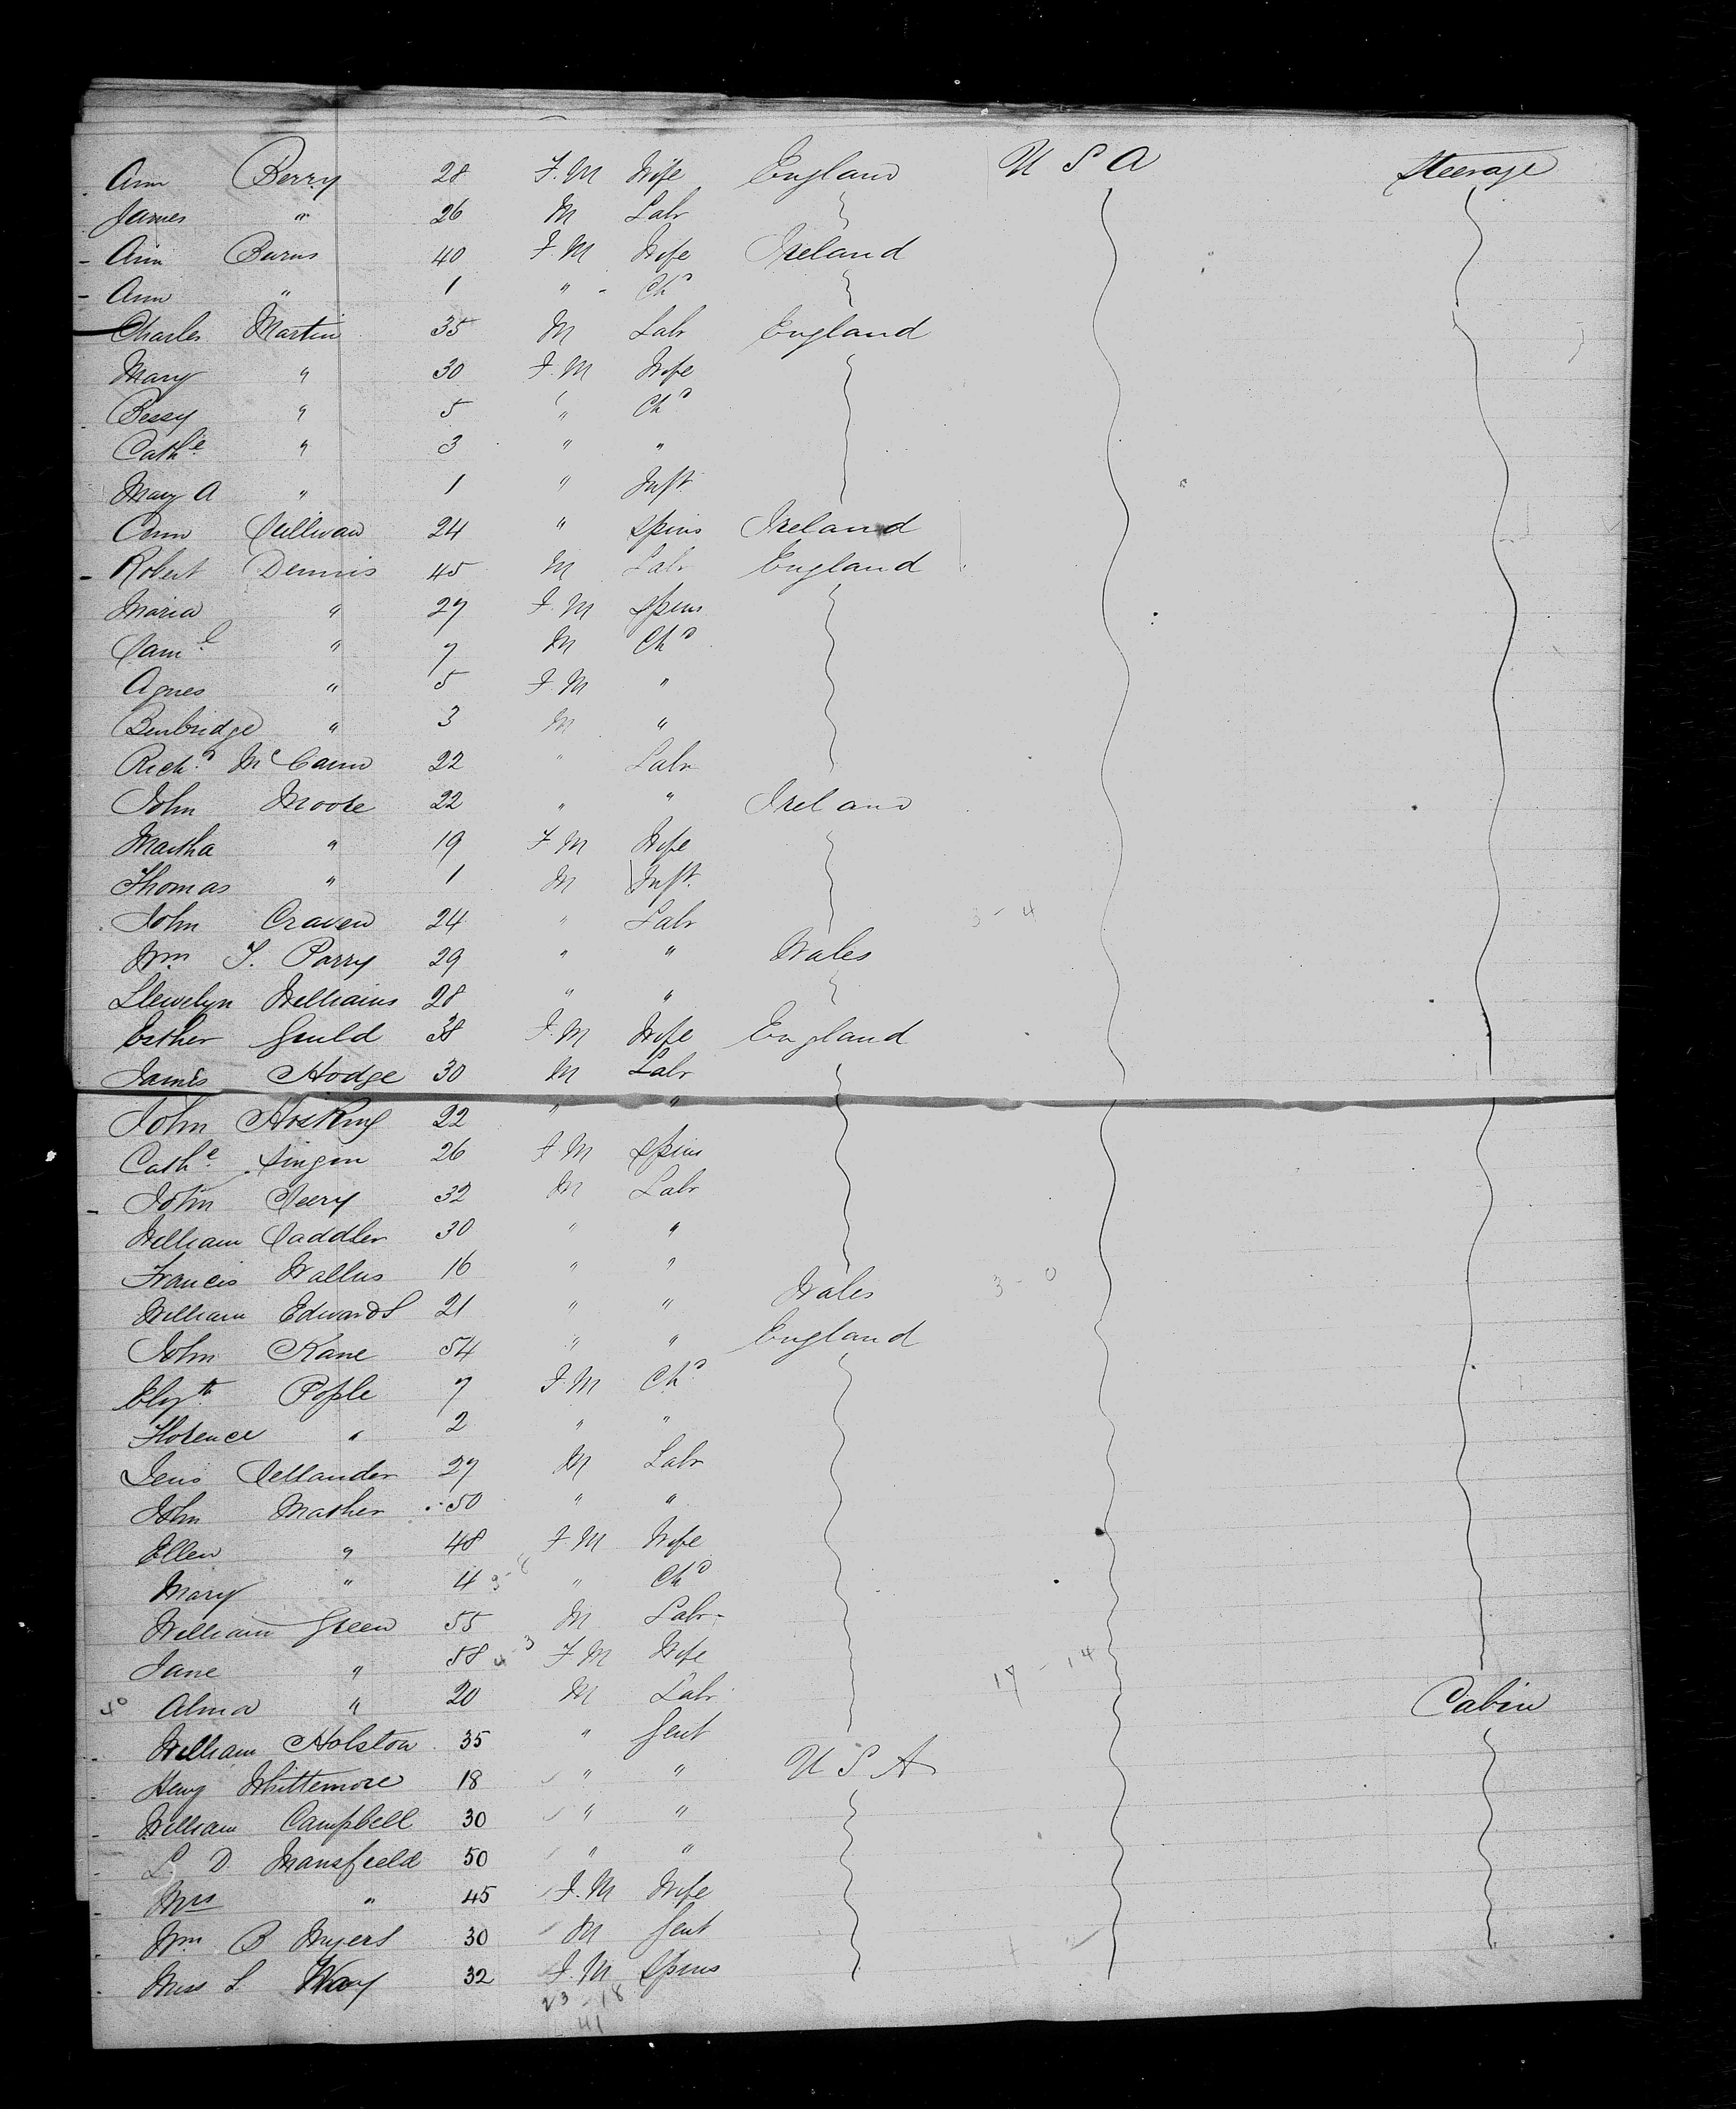 Ann Berry 28 F.M Wife England U S A Steerage
James " 26 M Labr
Ann Burns 40 F.M Wife Ireland
Ann " 1 " Chd
Charles Martin 35 M Labr England
Mary " 30 F.M Wife
Bessy " 5 " Chd
Cathe " 3 " "
Mary A " 1 " Inft
Ann Sullivan 24 " Spins Ireland
Robert Dennis 45 M Labr England
Maria " 27 F.M Spins
Saml " 7 M Chd
Agnes " 5 F.M "
Benbridge " 3 M "
Richd McCann 22 " Labr
John Moore 22 " " Ireland
Martha " 19 F M Wife
Thomas " 1 M Inft
John Craven 24 " Labr 3-4
Wm T. Parry 29 " " Wales
Llewelyn Williams 28 " "
Esther Guild 38 F.M Wife England
James Hodge 30 M Labr
John Hosking 22 " "
Cathe 26 F M Spins
John Seery 32 M Labr
William Saddler 30 " "
Francis Wallus 16 " "
William Edwards 21 " " Wales 3-0
John Kane 54 " " England
Elizth Pople 7 F.M Chd
Florence " 2 " "
Jens Sellander 27 M Labr
John Mather 50 " "
Ellen " 48 F M Wife
Mary " 4 " Chd
William Green 55 M Labr
Jane " 58 F M Wife 17-14
Alma " 20 M Labr Cabin
William Holston 35 " Gent
Henry Whittemore 18 " " U S A
William Campbell 30 " "
L. D. Mansfield 50 " "
Mrs " 45 F.M Wife
Wm B Myers 30 M Gent
Miss L Way 32 F.M Spins
23-18
41